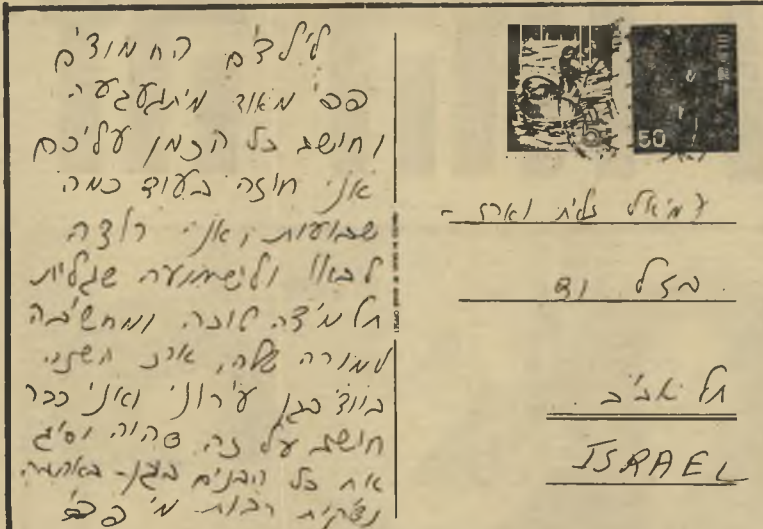 לילדים החמודים
פפי מאוד מיתגעגעה
וחושב כל הזמן עליכם
אני חוזה בעוד כמה
שבועות, ואני רוצה
לבוא ולישמועה שגלית
תלמידה טובה ומחשיבה
למורה שלה, ארז
בגן עירוני ואני כבר
חושב על זה שהיה
את כל הבנים בגן - באהבה
נשיקות רבות מ' פפי
50
גלית וארז -
בזל
תל אביב
ISRAEL